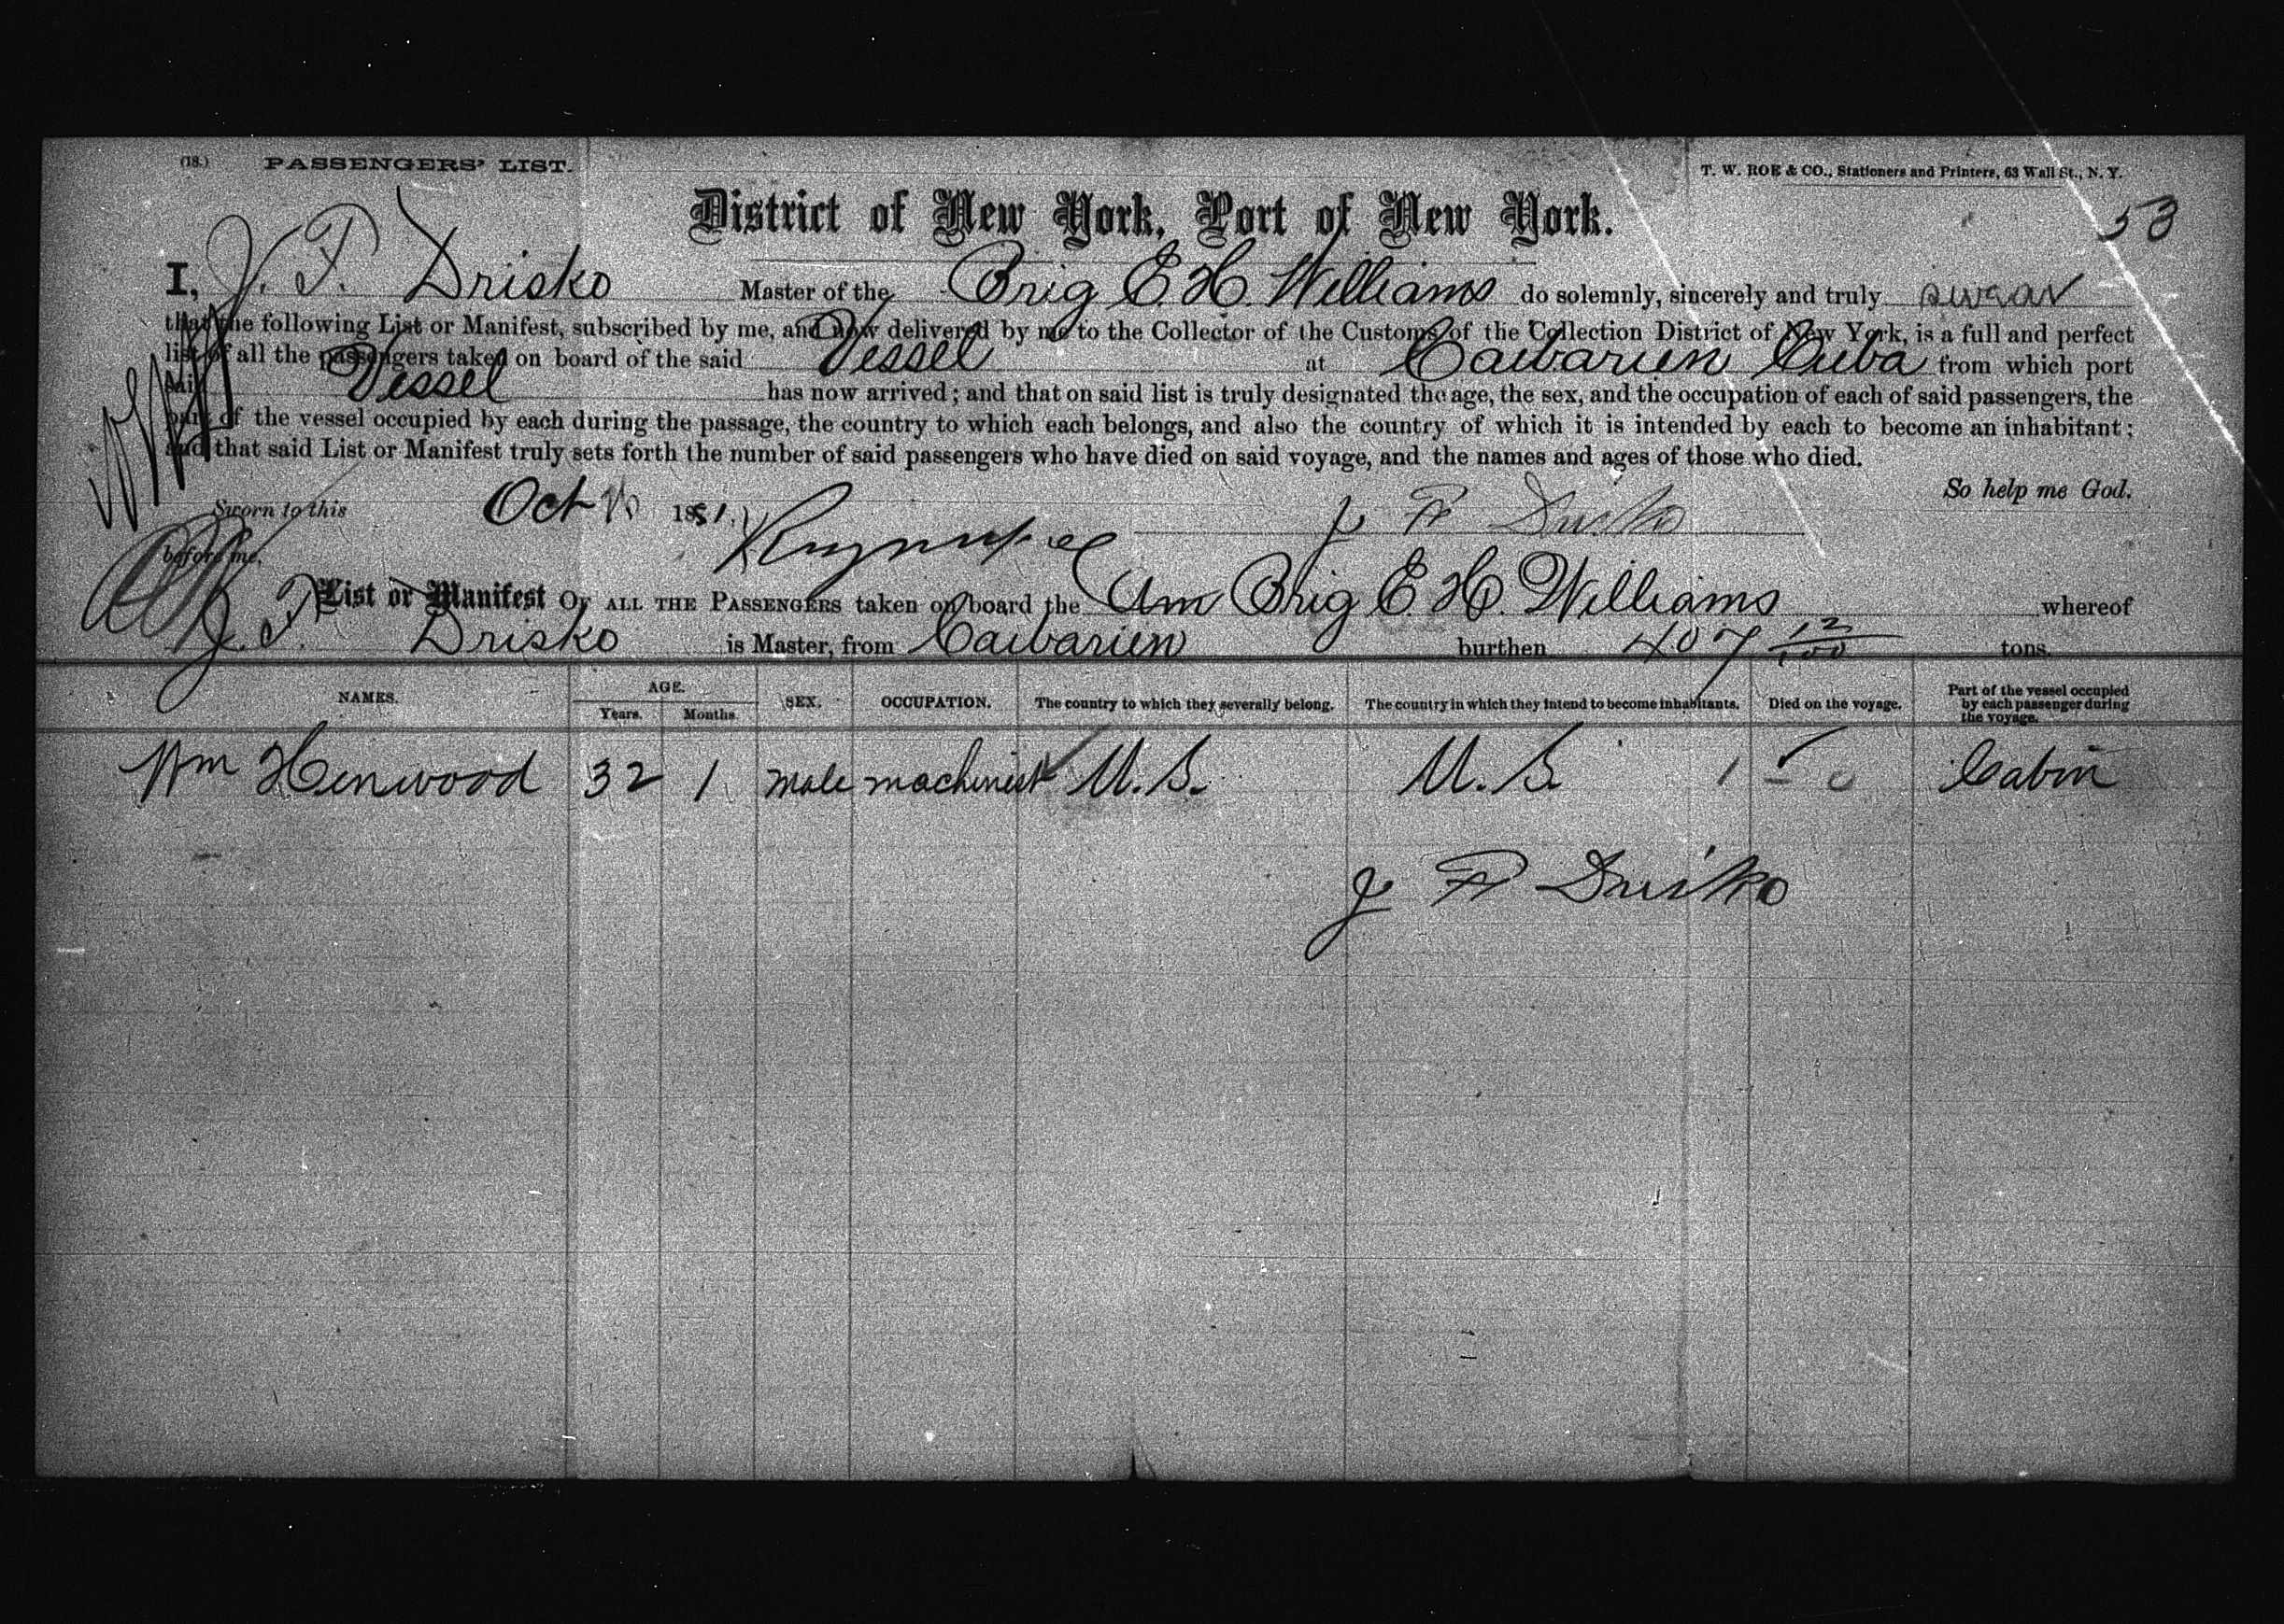 (18.) PASSENGERS' LIST.
T. W. ROE & CO., Stationers and Printers, 63 Wall St., N. Y.
53
District of New York, Port of New York.
I, J. F. Drisko Master of the Brig E. H. Williams do solemnly, sincerely and truly swear
that the following List or Manifest, subscribed by me, and now delivered by me to the Collector of the Customs of the Collection District of New York, is a full and perfect
list of all the passengers taken on board of the said Vessel at Caibarien Cuba from which port
said Vessel has now arrived; and that on said list is truly designated the age, the sex, and the occupation of each of said passengers, the
part of the vessel occupied by each during the passage, the country to which each belongs, and also the country of which it is intended by each to become an inhabitant;
and that said List or Manifest truly sets forth the number of said passengers who have died on said voyage, and the names and ages of those who died.
So help me God.
Sworn to this Oct 1881. J F Drisko
before me,
List or Manifest OF ALL THE PASSENGERS taken on board the Am Brig E. H. Williams whereof
J. F. Drisko is Master, from Caibarien burthen 407 12/100 tons.
NAMES. AGE. Years. Months. SEX. OCCUPATION. The country to which they severally belong. The country in which they intend to become inhabitants. Died on the voyage. Part of the vessel occupied by each passenger during the voyage.
Wm Henwood 32 1 male machinist U. S. U. S. Cabin
J F Drisko